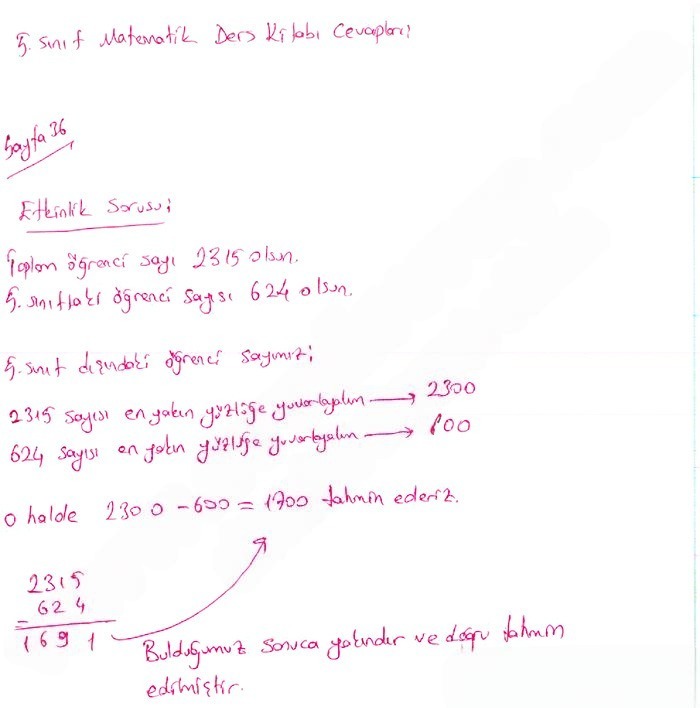 5. sınıf Matematik Ders Kitabı Cevapları:
Sayfa 36
Etkinlik Sorusu:
Toplam öğrenci sayı 2315 olsun.
5. sınıftaki öğrenci sayısı 624 olsun.
5. sınıf dışındaki öğrenci sayımız:
2315 sayısı en yakın yüzlüğe yuvarlayalım → 2300
624 sayısı en yakın yüzlüğe yuvarlayalım → 600
O halde 2300 - 600 = 1700 tahmin ederiz.
2315
- 624
1691
Bulduğumuz sonuca yakındır ve doğru tahmin
edilmiştir.